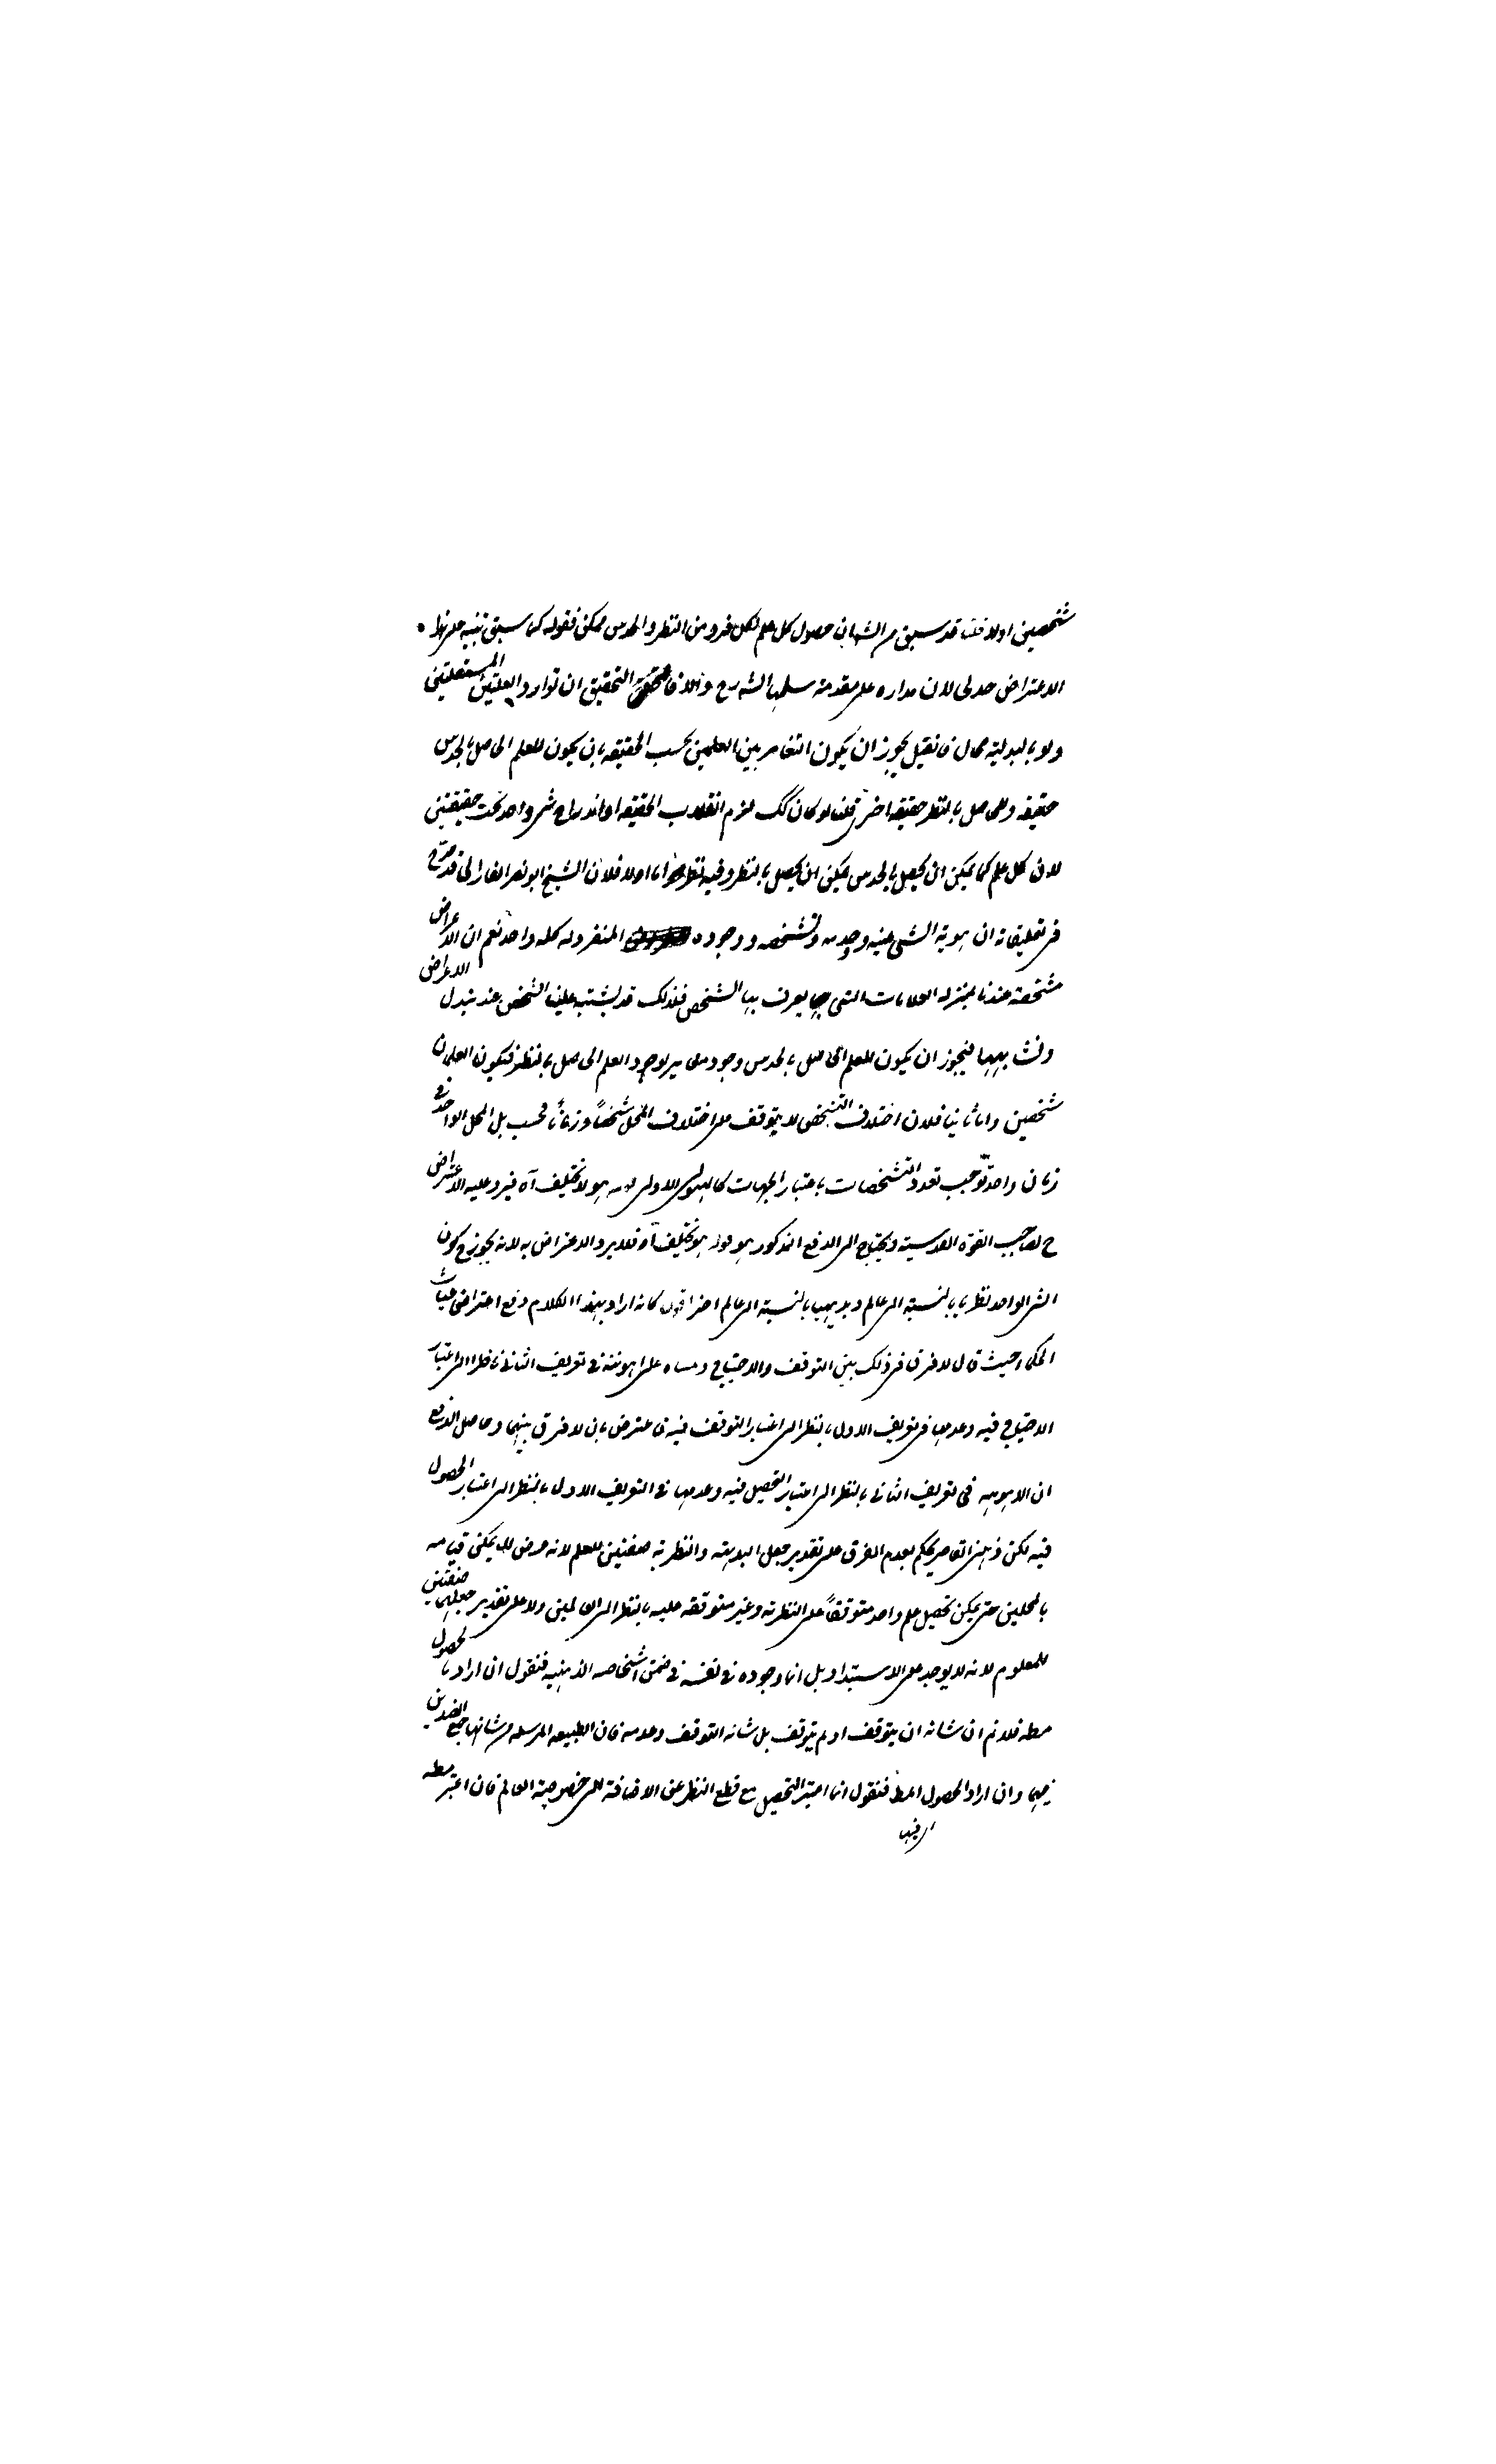 شخصين اولا قلت قد سبق من الشارح ان حصول كل علم لكل فرد من النظر والحدس ممكن فقوله كما سبق تنبيه على هذا
الاعتراض جدلى لان مداره على مقدمة سلمها الشارح والا فالتحقيق ان توارد العلتين المستقلتين
ولو بالبدلية محال فان قيل يجوز ان يكون التغاير بين العلمين بحسب الحقيقة بان يكون للعلم الحاصل بالحدس
حقيقة وللحاصل بالنظر حقيقة اخرى قلنا لو كان كك لزم انقلاب الحقيقة او اندراج شى واحد تحت حقيقتين
لان كل علم كما يمكن ان يحصل بالحدس يمكن ان يحصل بالنظر وفيه نظر اما اولا فلان الشيخ ابو نصر الفارابى قد صرح
فى تعليقاته ان هوية الشى عينه وحدته وتشخصه ووجوده المنفرد له كله واحد نعم ان الاعراض
مشخصة عندنا بمنزلة العلامات التى يعرف بها الشخص فلذلك قد يشتبه علينا الشخص عند تبدل الاعراض
وتشابهها فيجوز ان يكون للعلم الحاصل بالحدس وجود مغاير لوجود العلم الحاصل بالنظر فيكون العلمان
شخصين واما ثانيا فلان اختلاف التشخص لا يتوقف على اختلاف المحل شخصاً وزماناً فحسب بل المحل الواحد فى
زمان واحد يوجب تعدد التشخصات باعتبار الجهات كالهيولى الاولى قوله هو لا تختلف آه فيرد عليه الاعتراض
ح لصاحب القوة القدسية ويحتاج الى الدفع المذكور هو قوله هو تختلف آه فلا يرد الاعتراض به لانه يجوز ح كون
الشى الواحد نظريا بالنسبة الى عالم وبديهيا بالنسبة الى عالم اخر اقول كانه اراد بهذا الكلام دفع اعتراض غياث
الحكماء حيث قال لا فرق فى ذلك بين التوقف والاحتياج ومبناه على اهونته فى تعريف الثانى ناظرا الى اعتبار
الاحتياج فيه وعدمها فى تعريف الاول بالنظر الى اعتبار التوقف فيه فاعترض بان لا فرق بينهما وحاصل الدفع
ان الاهونية فى تعريف الثانى بالنظر الى اعتبار التحصيل فيه وعدمها فى التعريف الاول بالنظر الى اعتبار الحصول
فيه لكن ذهنى القاصر يحكم بعدم الفرق على تقدير جعل البديهية والنظرية صفتين للعلم لانه عرض لا يمكن قيامه
بالمحلين حتى يمكن تحصيل علم واحد متوقفاً على النظرية وغير متوقفة عليه بالنظر الى العالمين ولا على تقدير جعلهما صفتين
للمعلوم لانه لا يوجد على الاستبداد بل انما وجوده فى نفسه فى ضمن اشخاصه الذهنية فنقول ان اراد بالحصول
مطلقه فلا نم ان شانه ان يتوقف او لم يتوقف بل شانه التوقف وعدمه فان الطبيعة المرسلة من شانها جمع الضدين
فيهما وان اراد الحصول المط فنقول انما اعتبر التحصيل مع قطع النظر عن الاضافة الى خصوصية العالم فان اعتبر مطلقه